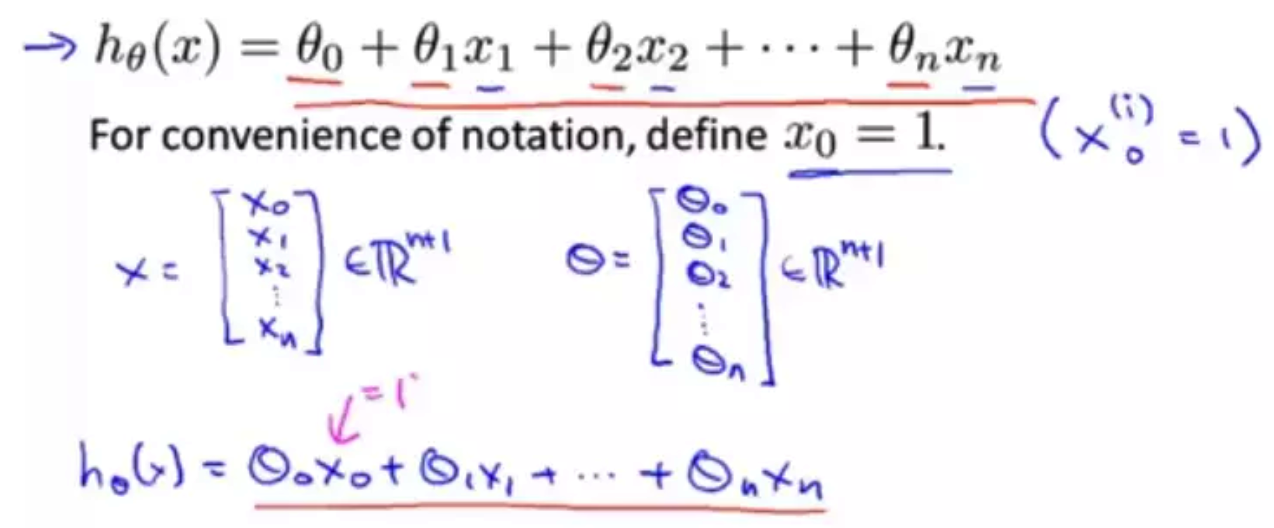 → hθ(x) = θ₀ + θ₁x₁ + θ₂x₂ + ⋯ + θₙxₙ
For convenience of notation, define x₀ = 1. (x₀⁽ⁱ⁾ = 1)
x = [x₀ x₁ x₂ ⋮ xₙ] ∈ ℝⁿ⁺¹ θ = [θ₀ θ₁ θ₂ ⋮ θₙ] ∈ ℝⁿ⁺¹
= 1
hθ(x) = θ₀x₀ + θ₁x₁ + ⋯ + θₙxₙ